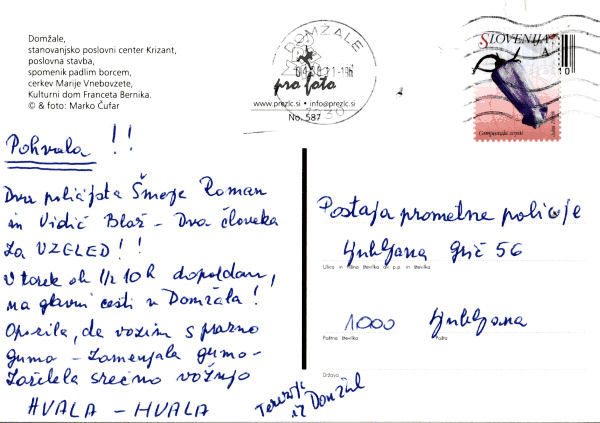 Domžale,
stanovanjsko poslovni center Krizant,
poslovna stavba,
spomenik padlim borcem,
cerkev Marije Vnebovzete,
Kulturni dom Franceta Bernika.
© & foto: Marko Čufar
DOMŽALE
1230
pro foto
www.prezlc.si • info@prezlc.si
No. 587
SLOVENIJA
A
10
Pohvala !!
Dva policista Šmeje Roman
in Vidic Blaž – Dva človeka
za VZGLED!!
V torek ob 1/2 10h dopoldan,
na glavni cesti v Domžala!
Opozila, da vozim s prazno
gumo – zamenjala gumo –
Zaželela srečno vožnjo
HVALA – HVALA
Terezija
iz Domžal
Postaja prometne policije
Ljubljana Grič 56
Ulica in hišna številka oz. p.p. in številka
1000 Ljubljana
Poštna številka Pošta
Država